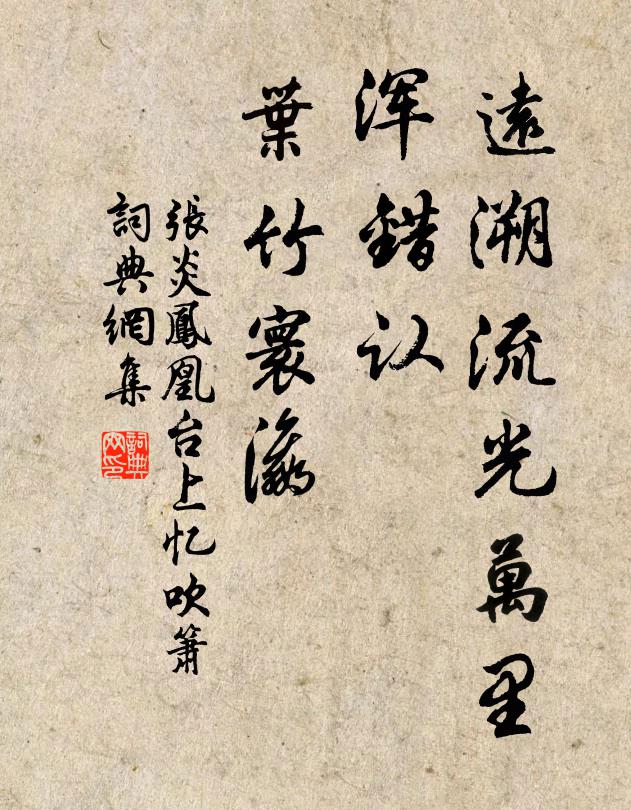 遠溯流光萬里
浑錯认
葉竹寰瀛
張炎鳳凰台上忆吹簫
詞典網集
詞典网印